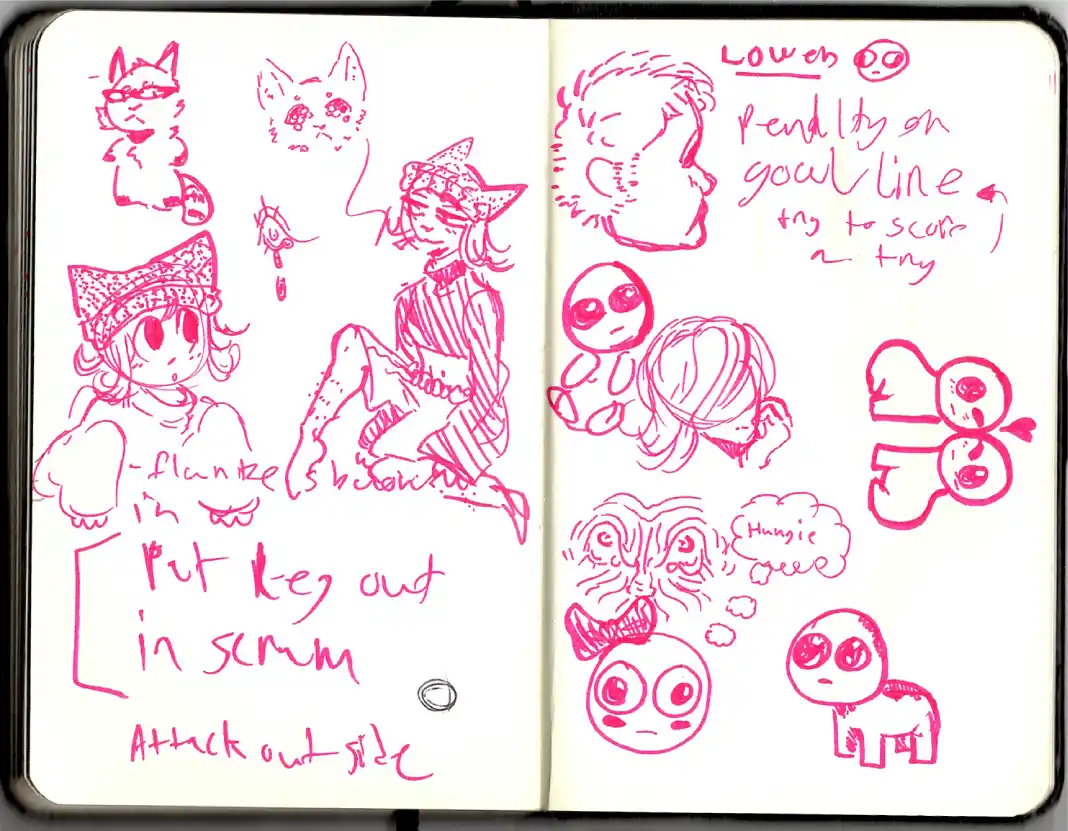 - flanker's
in
Put leg out
in scrum
Attack out side
Lower
Penalty on
goal line
try to score
a try
Hungie